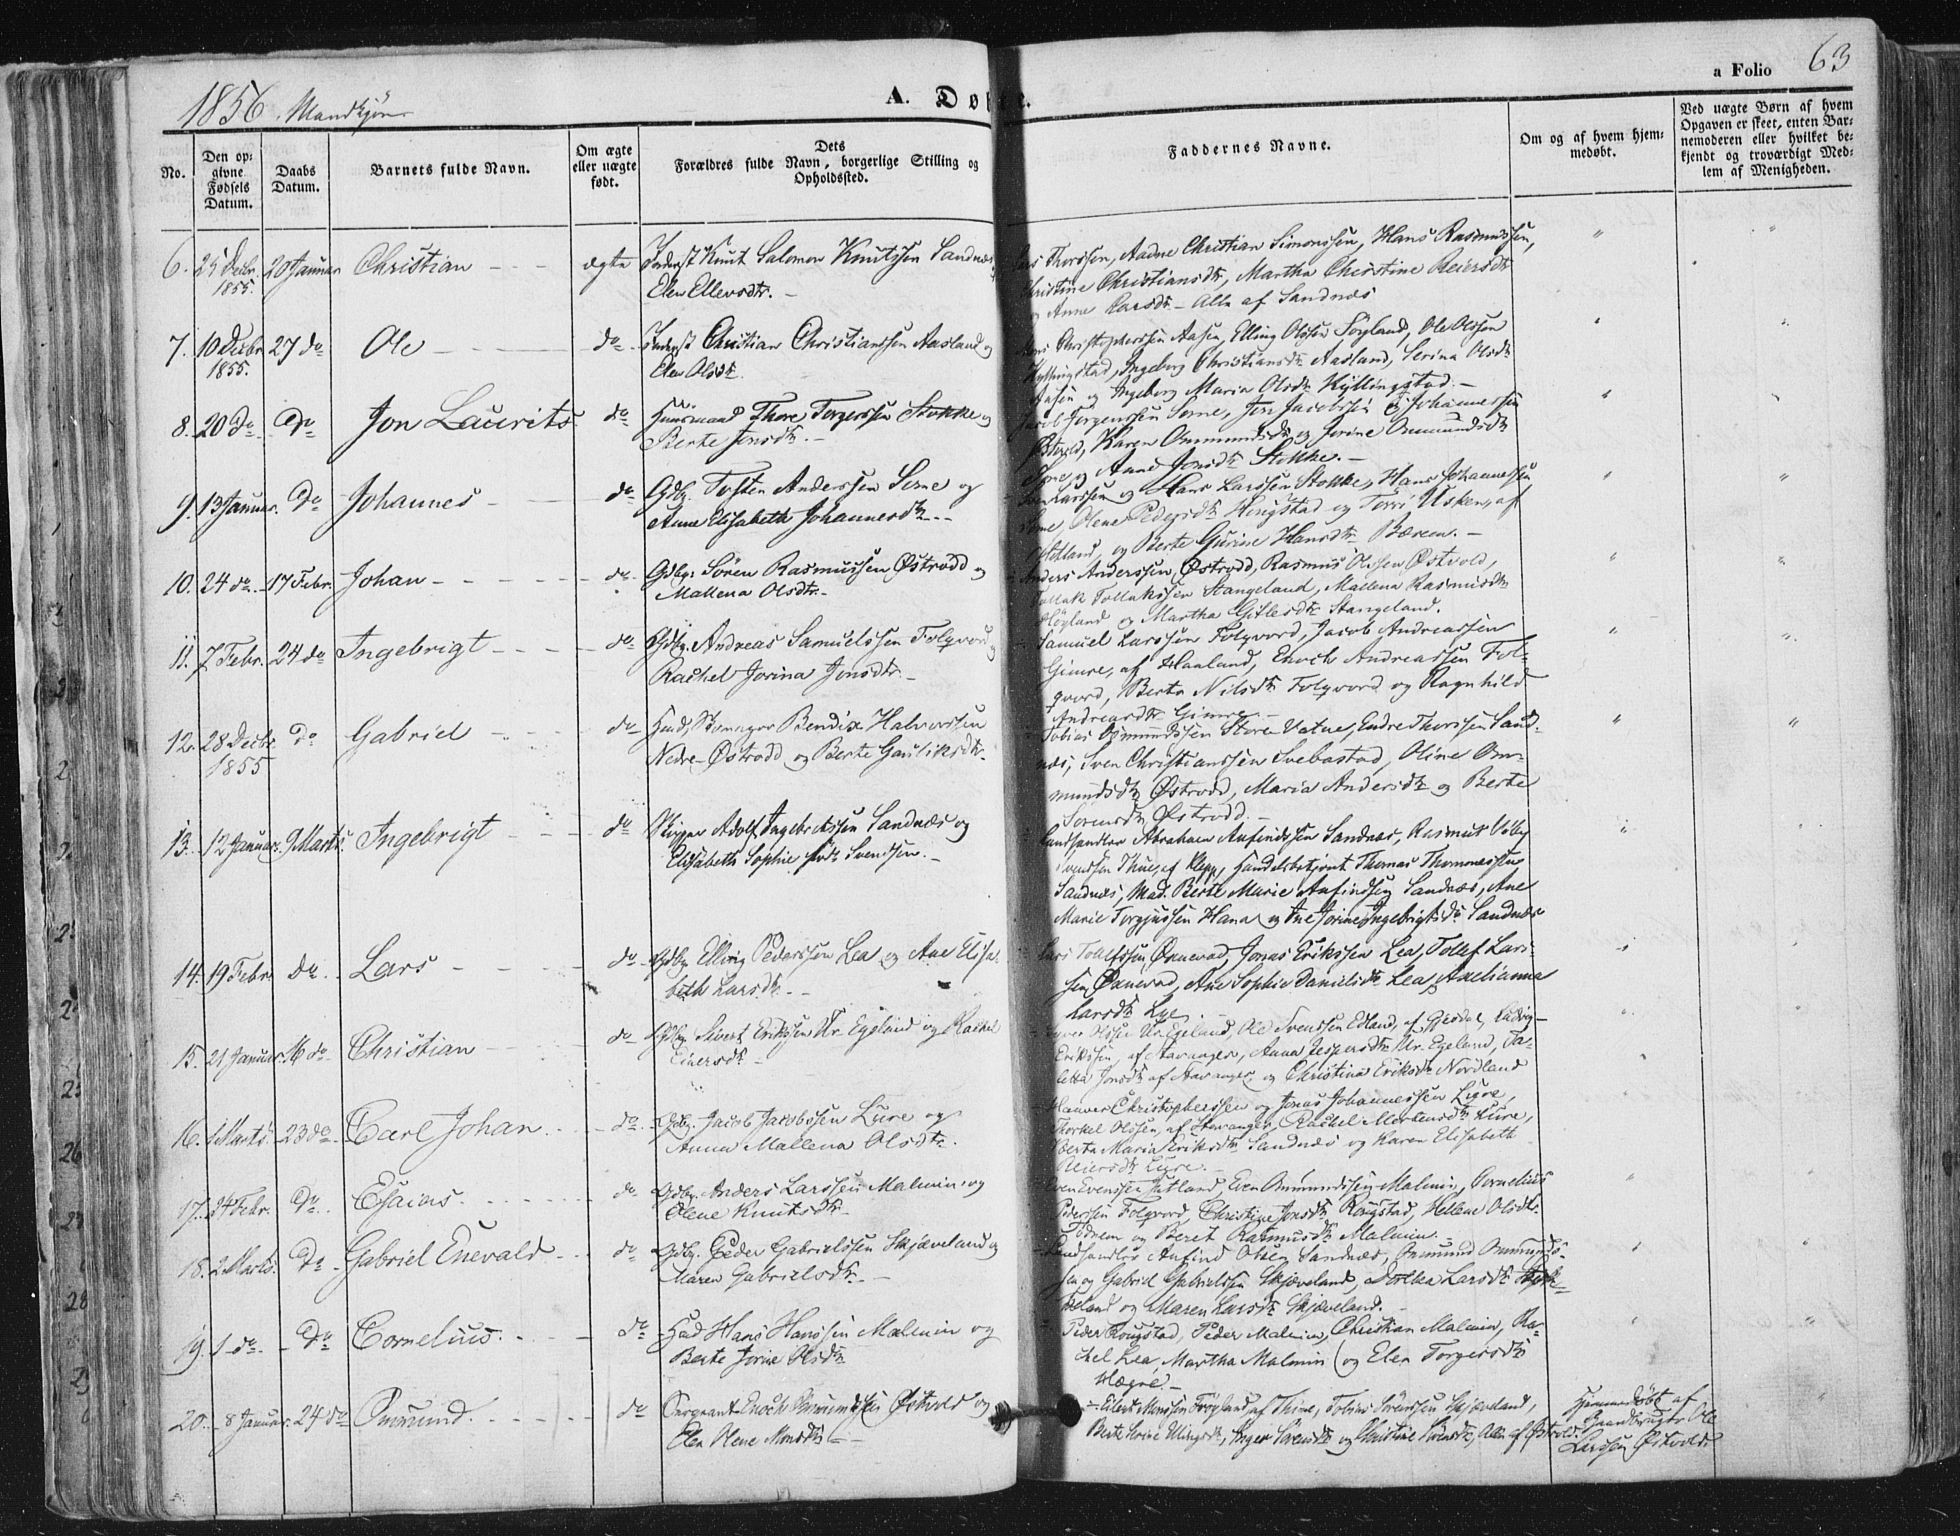 1856. Mandkjøn
A. Døbte.
a Folio 63
No.
Den opgivne Fødsels Datum.
Daabs Datum.
Barnets fulde Navn.
Om ægte eller uægte født.
Dets Forældres fulde Navn, borgerlige Stilling og Opholdssted.
Faddernes Navne.
Om og af hvem hjemmedøbt.
Ved uægte Børn af hvem Opgaven er skeet, enten Barnemoderen eller hvilket bekjendt og troværdigt Medlem af Menigheden.
6. 25 Decbr 1855. 20 Januar Christian ægte Inderst Knut Salomon Knutssen Sandnæs
Elen Ellevsdtr.
Thorssen, Aadne Christian Simonssen, Hans Rasmussen,
Christine Christiansdtr, Martha Christine Reiersdtr
og Anne Larsdtr - Alle af Sandnæs
7. 10 Decbr 1855. 27 do Ole do Inderst Christian Christianssen Aasland og
Elen Olsdtr.
Christophersen Aasen, Elling Olssen Søyland, Ole Olssen
Kyllingstad, Ingeborg Christiansdtr Aasland, Serina Olsdtr
Aasen og Ingeborg Maria Olsdtr Kyllingstad.
8. 20 do Do Jon Laurits do Huusmand Thore Torgerssen Stokke og
Berte Jonsdtr.
Jacob Torgerssen Sørne, Jon Jacobssen og Johannessen
Østvold, Karen Ommundsdtr og Jorine Ommundsdtr
og Anne Jonsdtr Stokke.
9. 13 Januar. Do Johannes do Gdbg. Tosten Anderssen Sørne og
Anne Elisabeth Johannesdtr.
Larssen og Hans Larssen Stokke, Hans Johannessen
Olene Pedersdtr Hogstad og Torri Usken, af
Hetland, og Berte Gurine Hansdtr Bærem.
10. 24 do 17 Febr. Johan do Gdbg. Sören Rasmussen Østrodd og
Mallena Olsdtr.
Anders Anderssen Østrodd, Rasmus Olssen Østvold,
Tollak Tollakssen Stangeland, Mallena Rasmusdtr
Høyland og Martha Gitlesdtr Stangeland.
11. 7 Febr. 24 do Ingebrigt do Gdbg. Andreas Samuelssen Folqvord og
Rachel Jorina Jonsdtr.
Samuel Larssen Folqvord, Jacob Andreassen
Gimre, af Haaland, Enoch Andreassen Fol-
qvord, Berta Nilsdtr Folqvord og Ragnhild
Andreasdtr Gimre.
12. 28 Decbr 1855 Do Gabriel do Bendix Halvorssen
Nedre Østrodd og Berte Gauliksdtr.
Tobias Osmundssen Store Vatne, Endre Thorssen Sand-
næs, Sven Christianssen Svebostad, Oline Om-
mundsdtr Østrodd, Maria Andersdtr og Berte
Sørensdtr Østrodd.
13. 12 Januar. 9 Marts. Ingebrigt do Skipper Adolf Ingebretssen Sandnæs og
Elisabeth Sophie født Svendsen.
Landhandler Abraham Anfindssen Sandnæs, Rasmus Voldy
Svendsen Thue, af Klepp, Handelsbetjent Thomas Thommassen
Sandnæs, Mad. Berte Marie Anfindsen Sandnæs, Ane
Marie Torgjussen Hana og Ane Jorine Ingebrigtsdr Sandnæs
14. 19 Febr. do Lars do Gdbg Elling Pederssen Lea og Ane Elisa-
beth Larsdtr.
Lars Tollefssen Øxnevad, Jonas Erikssen Lea, Tollef Lars-
sen Øxnevad, Ane Sophie Danielsdtr Lea, Axelianna
Larsdtr Lye
15. 21 Januar. 16 do Christian do Gdbg Sivert Erikssen Nr. Egeland og Rachel
Einersdtr
Olssen Nr. Egeland, Ole Svenssen Edland, af Gjesdal, Ludvig
Erikssen, af Stavanger, Anna Jespersdtr Nr. Egeland, Ta-
letta Jonsdtr af Stavanger, og Christina Eriksdtr Nordland
16. 1 Marts. 23 do Carl Johan do Gdbg. Jacob Jacobssen Lure og
Anna Mallena Olsdtr.
Haaver Christopherssen og Jonas Johannessen Lure,
Thorkel Olssen, af Stavanger, Rachel Mortensdtr Lure,
Berta Maria Eriksdtr Sandnæs og Karen Elisabeth
Reiersdtr Lure.
17. 24 Febr. Do Esaias do Gdbg. Anders Larssen Malmin og
Olene Knutsdtr
Even Evenssen Jutland, Even Ommundssen Malmin, Cornelius
Pederssen Folqvord, Christine Jonsdtr Rougstad, Hellene Olsdtr
og Beret Rasmusdtr Malmin.
18. 2 Marts. Do Gabriel Enevald do Gdbg. Peder Gabrielssen Skjæveland og
Maren Gabrielsdtr.
Landhandler Anfind Olsen Sandnæs, Ommund Ommunds-
sen og Gabriel Gabrielssen Skjæveland, Dorthea Larsdtr
land og Maren Larsdtr Skjæveland.
19. 1 do Do Cornelius. do Hmd Hans Hanssen Malmin og
Berte Jorine Olsdtr
Peder Rougstad, Peder Malmin, Christian Malmin, Ra-
chel Lea, Martha Malmin og Elen Torgersdtr
Hægre.
20. 8 Januar. 24 do Ommund. do Sergeant Enoch Ommundssen Østvold og
Elen Olene Monsdtr
Eilert Monssen Förgland af Thime, Tobias Sörenssen Skjæveland,
Berte Serine Elingsdtr, Inger Sörensdtr og Christine Sörensdtr, Alle af Østvold.
Hjemmedøbt af
Gaardbruger Ole
Larssen Østvold.